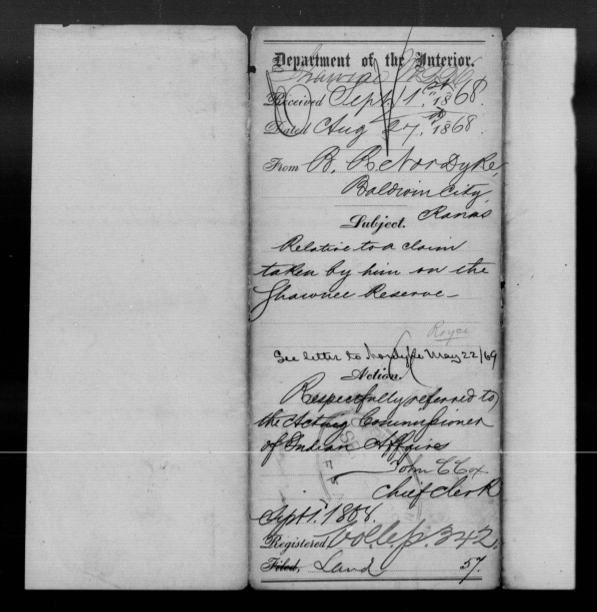 Department of the Interior.
Shawnee
Received Sept. 1st 1868.
Dated Aug 27, 1868.
From B. R. Nordyke,
Baldwin City,
Kansas
Subject.
Relative to a claim
taken by him on the
Shawnee Reserve—
Royce
See letter to Nordyke May 22/69
Action.
Respectfully referred to
the Acting Commissioner
of Indian Affairs
John C Cox
Chief Clerk
Sept 1. 1868.
Registered, Vol. 6. p. 342.
Filed, Land 57.